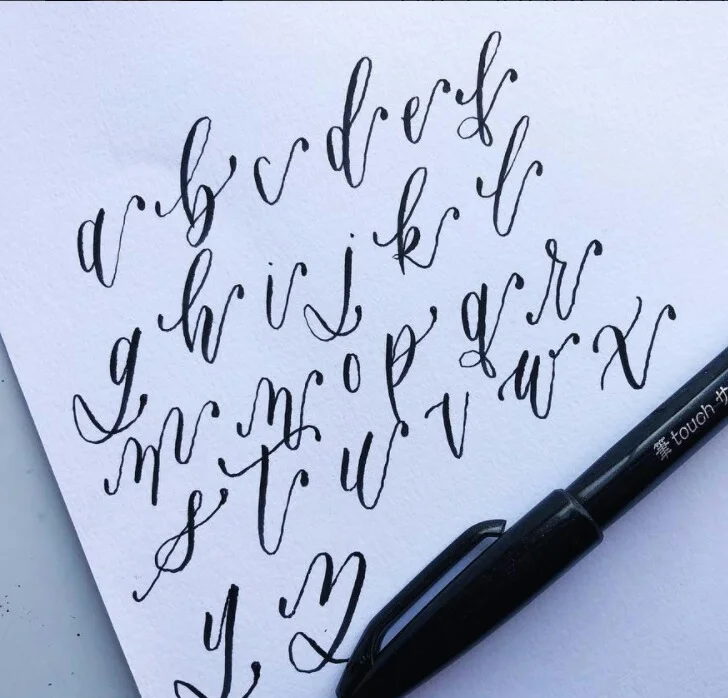 a b c d e f
g h i j k l
m n o p q r
s t u v w x
y z
筆touch サ